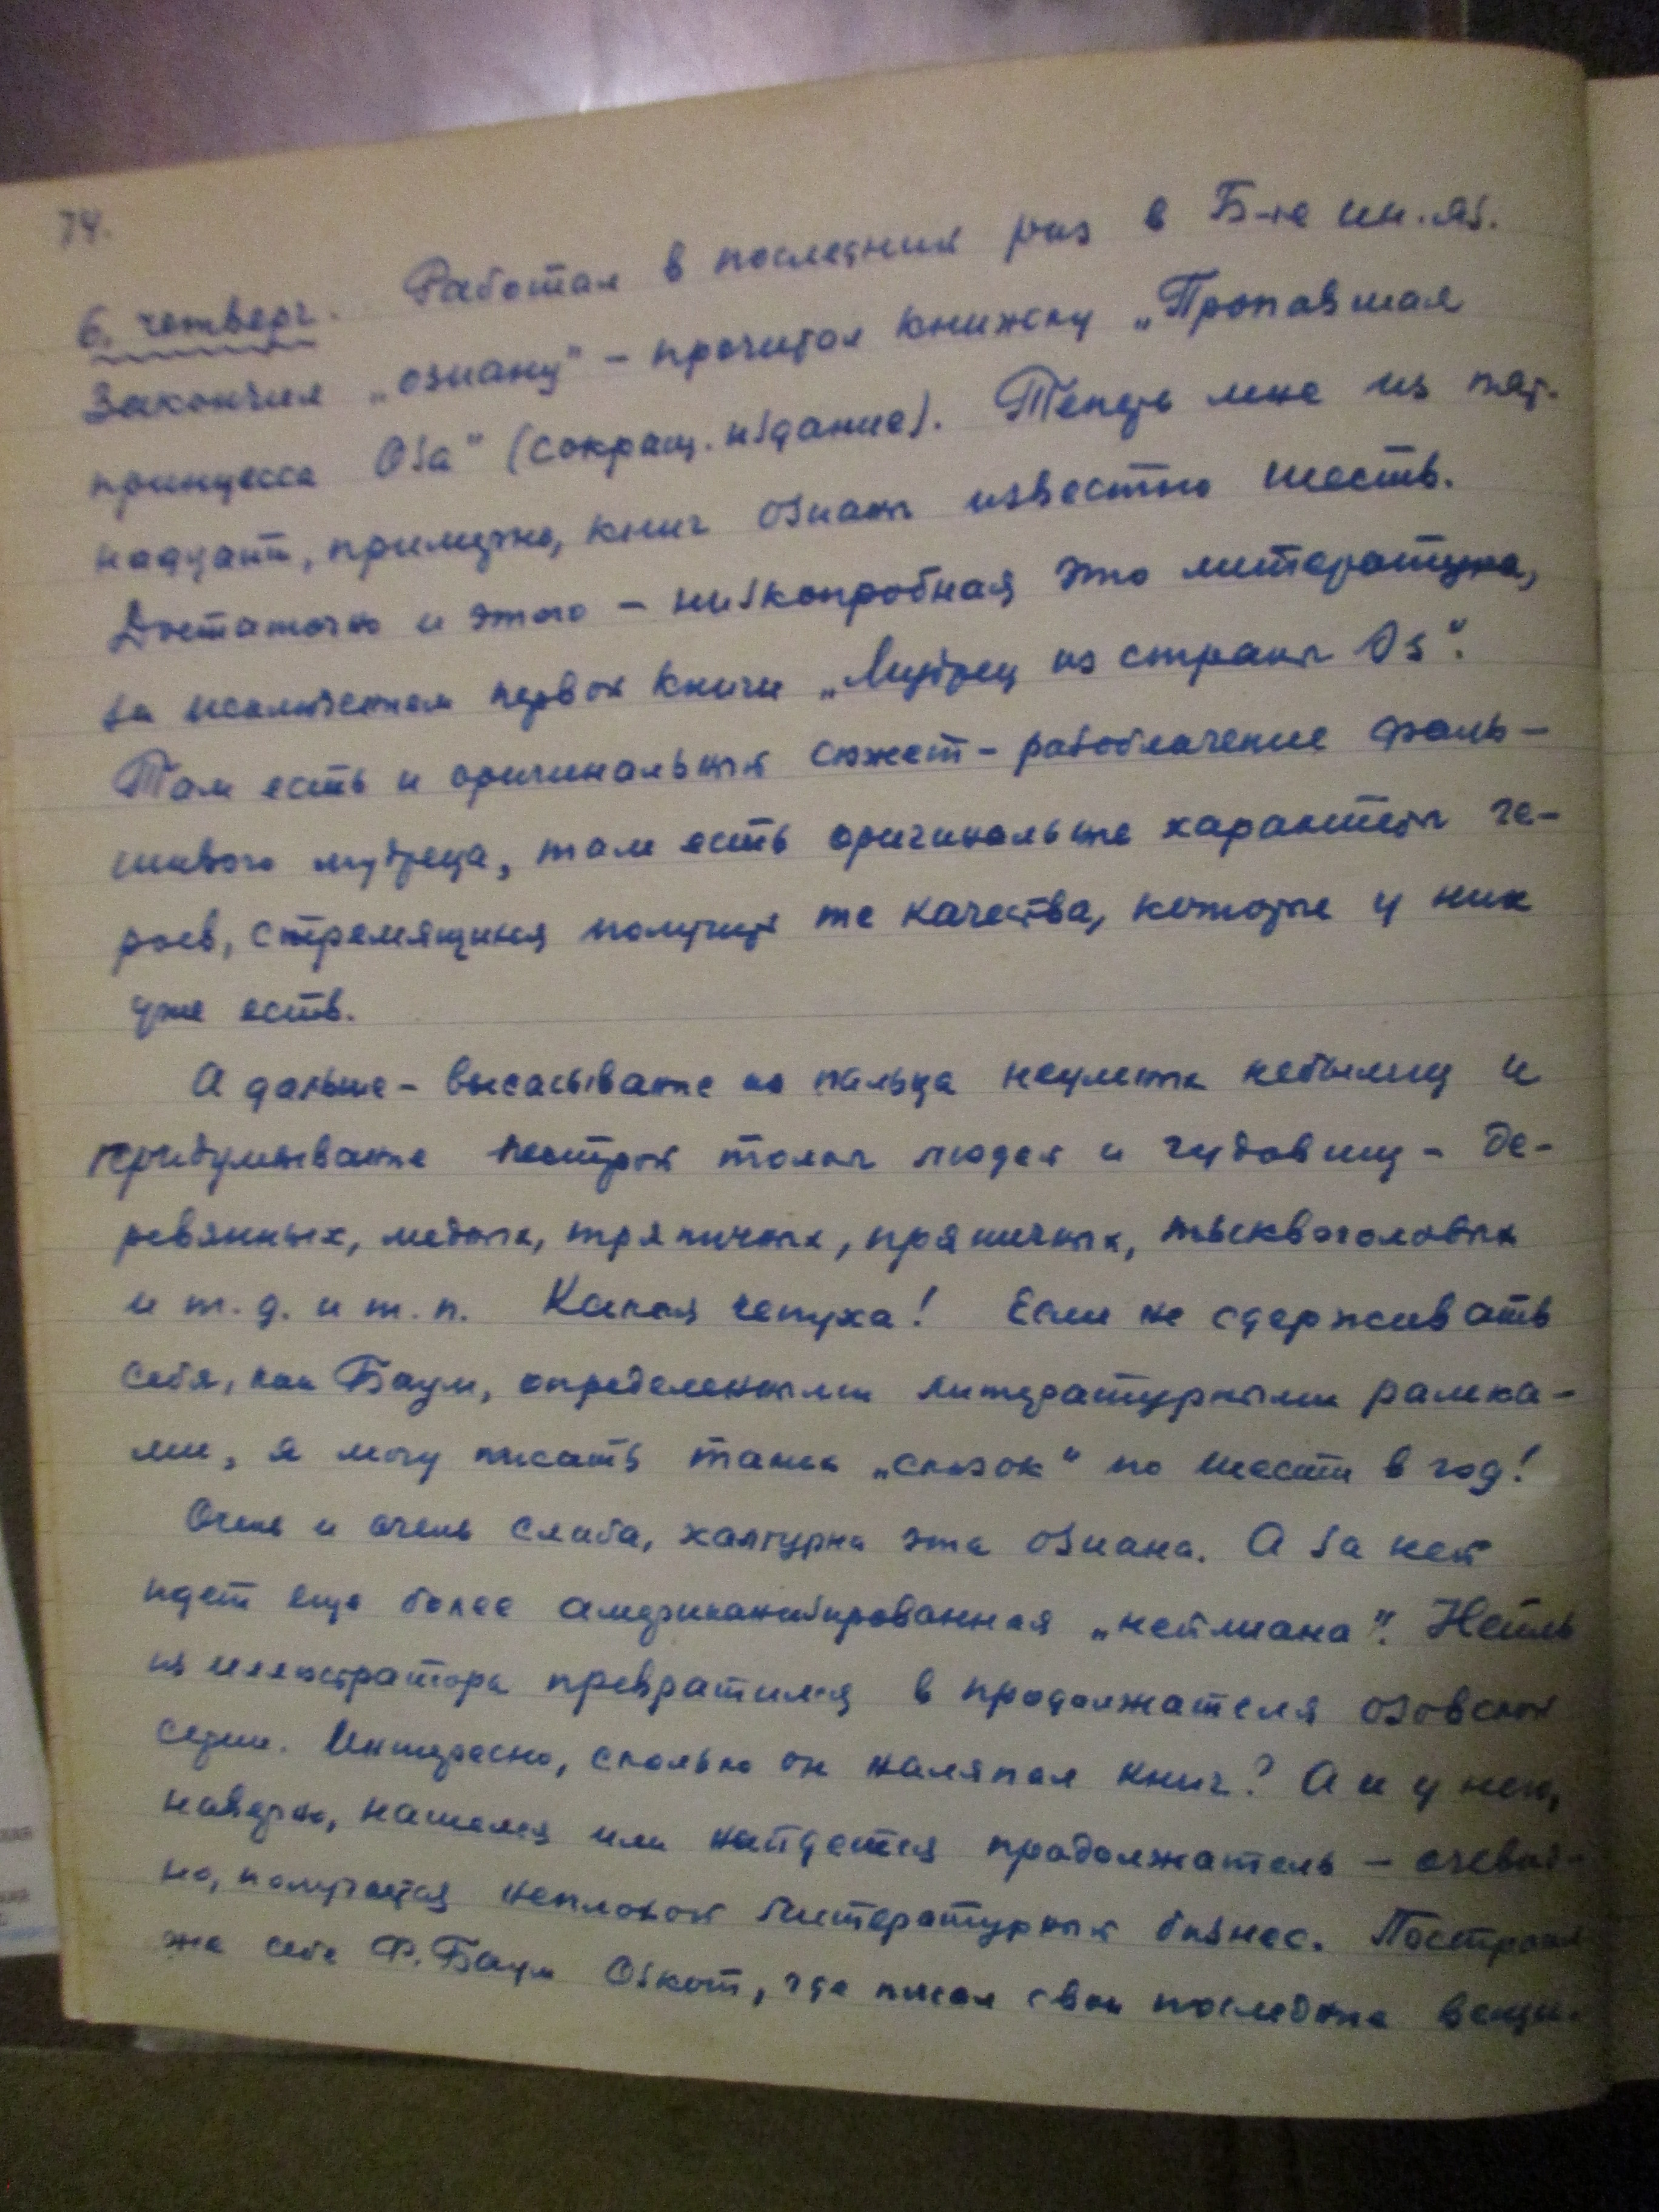 74.
6. четверг. Работал в последний раз в Б-ке ин. яз.
Закончил „озиану" – прочитал книжку „Пропавшая
принцесса Оза" (сокращ. издание). Теперь мне из пят-
надцати, примерно, книг озианы известно шесть.
Достаточно и этого – низкопробная это литература,
за исключением первой книги „Мудрец из страны Оз".
Там есть и оригинальный сюжет – разоблачение фаль-
шивого мудреца, там есть оригинальные характеры ге-
роев, стремящихся получить те качества, которые у них
уже есть.
А дальше – высасывание из пальца неумных небылиц и
придумывание пестрой толпы людей и чудовищ – де-
ревянных, медных, тряпичных, пряничных, тыквоголовых
и т. д. и т. п. Какая чепуха! Если не сдерживать
себя, как Баум, определенными литературными рамка-
ми, я могу писать таких „сказок" по шести в год!
Очень и очень слаба, халтурна эта озиана. А за ней
идет еще более американизированная „нейлиана". Нейль
из иллюстратора превратился в продолжателя озовской
серии. Интересно, сколько он наляпал книг? А и у него,
наверно, нашелся или найдется продолжатель – очевид-
но, получается неплохой литературный бизнес. Построил
же себе Ф. Баум Озкот, где писал свои последние вещи.